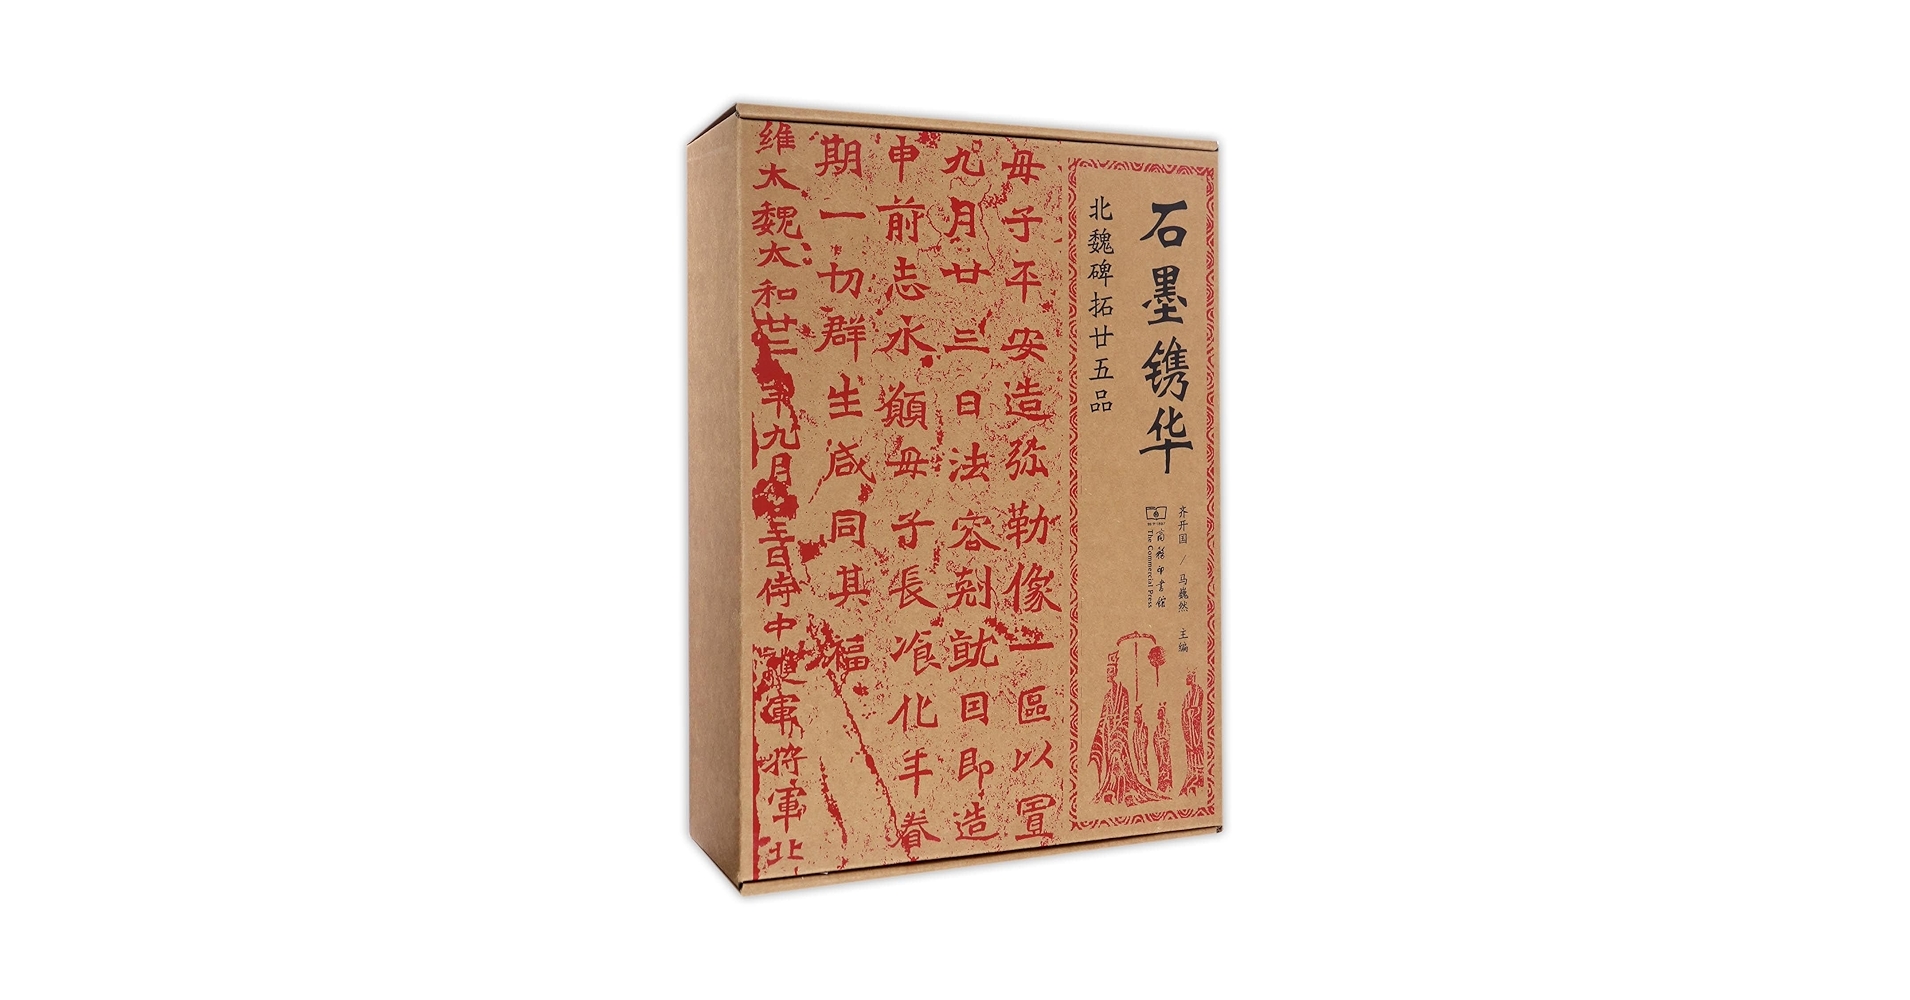 石墨镌华
北魏碑拓廿五品
齐开国 / 马巍然 主编
商務印書館
The Commercial Press
毋子平安造弥勒像一區以置
九月廿三日法容剋就因即造
申前志永願毋子長飡化年眷
期一切群生咸同其福
維太魏太和廿二年九月三日侍中護軍將軍北